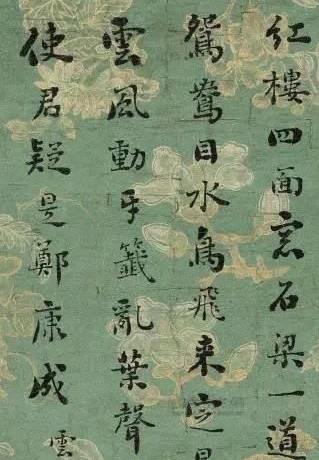 紅樓四面窓石梁一道
鴛鴦目水鳥飛來定
雲風動牙籤亂葉聲
使君疑是鄭康成 雲